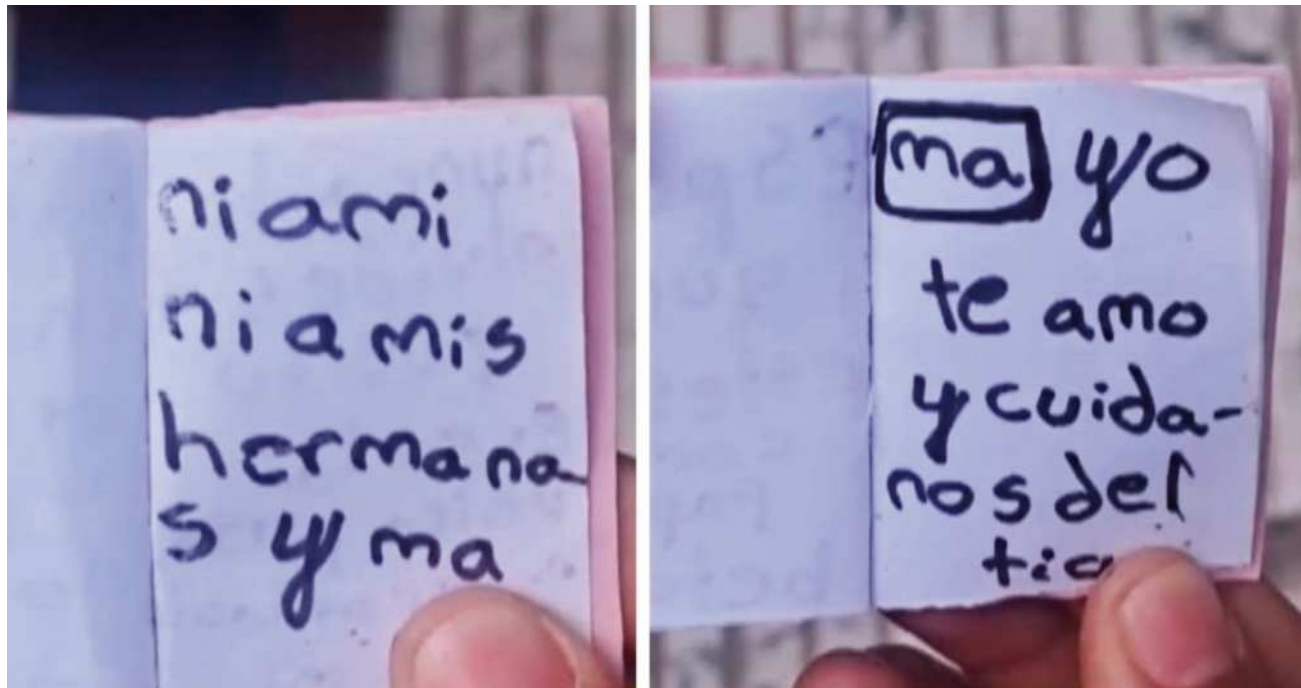 ni ami
ni a mis
hermana
s y ma
ma yo
te amo
y cuida-
nos del